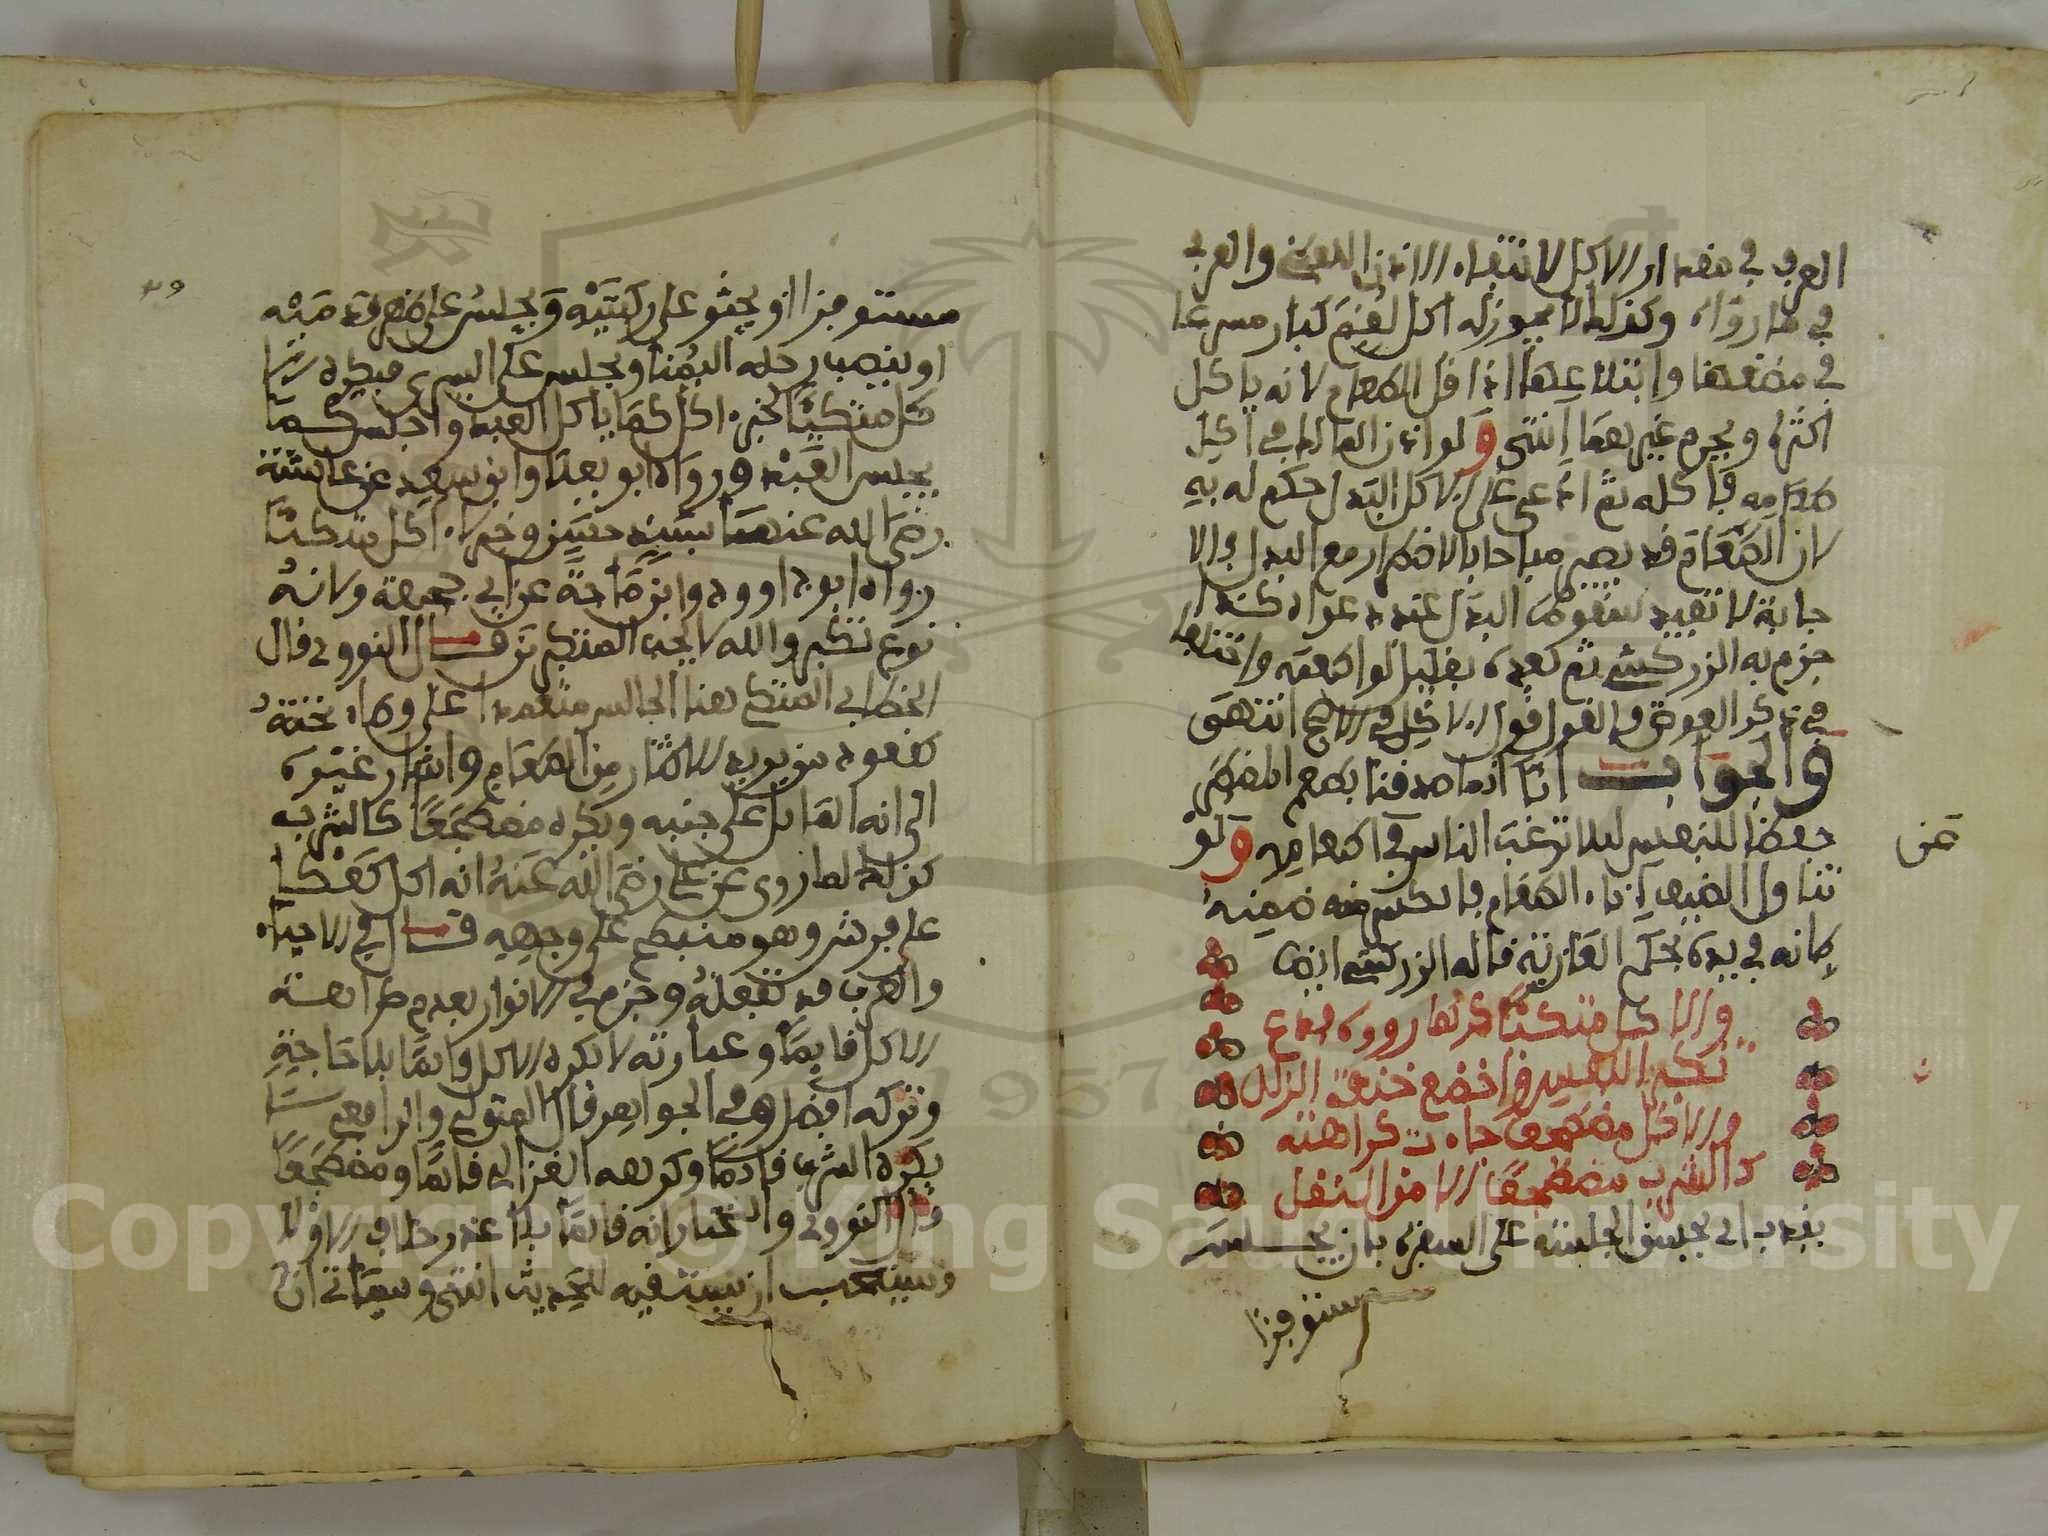 العرف في مقدار الاكل لا نتفاء الاذن اللفظي والعرفي
في ما رواه وكذلك لا يجوز له اكل لقم كبار مسرعا
في مضغها وابتلاعها اذا قل الطعام لانه ياكل
اكثره ويحرم غيره بعضا انتهى ولو اذن المالك في اكل
طعامه فاكله ثم ادعى على الاكل البدل حكم له به
لان الطعام قد يصير مباحا بالاضطرار مع البدل والا
حابة لا تفيد سقوط البدل عند دعواه كذا
جزم به الزركشي ثم بعده بقليل لو اطعمه واختلفا
في ذكر العوض فالقول قول الاكل في الاصح انتهى
والجواب انا انما صدقنا بطعم المضطر
حفظا للنفس ليلا ترغب الناس في اطعامه ولو
تناول الضيف اناء الطعام فانكسر منه ضمنه
لانه في يده بحكم العارية قاله الزركشي ايضا
والاكل متكيا كره لما رووه فدع
تكبر النفس واخضع خضعة الرجل
والاكل مضطجعا جاءت كراهته
كالشرب مضطجعا الا من النفل
يندب ان يحسن الجلسة على السفرة بان يجلس
مستوفزا
عن
٣٩
مستوفزا او يجثو على ركبتيه ويجلس على ظهر قدميه
او ينصب رجله اليمنى ويجلس على اليسرى فيكره الا
كل متكيا لخبر اكل كما ياكل العبد واجلس كما
يجلس العبد رواه ابو يعلا وابن سعيد عن عائشة
رضي الله عنهما بسند حسن وخبر لا اكل متكيا
رواه ابو داوود وابن ماجة عن ابي جحيفة ولانه
نوع تكبر والله لا يحب المتكبرين قال النووي قال
الخطابي المتكي هنا الجالس معتمدا على وطاء تحته
كقعود من يريد الاكثار من الطعام واشار غيره
الى انه المايل على جنبه ويكره مضطجعا كالشرب
كذلك لما روي عن علي رضي الله عنه انه اكل كعكا
على فرش وهو منبطح على وجهه قال في الاحياء
والعرب قد تفعله وجزم في الانوار بعدم كراهته
الاكل قايما وعبارته لا يكره الاكل قايما بلا حاجة
وتركه افضل وفي الجواهر قال المتولي والرافعي لا
يكره الشرب قايما وكرهه الغزالي قايما ومضطجعا
قال النووي والمختار انه قايما بلا عذر خلاف الاولى
ويستحب ان يستقيه للحديث انتهى وسياتي ان